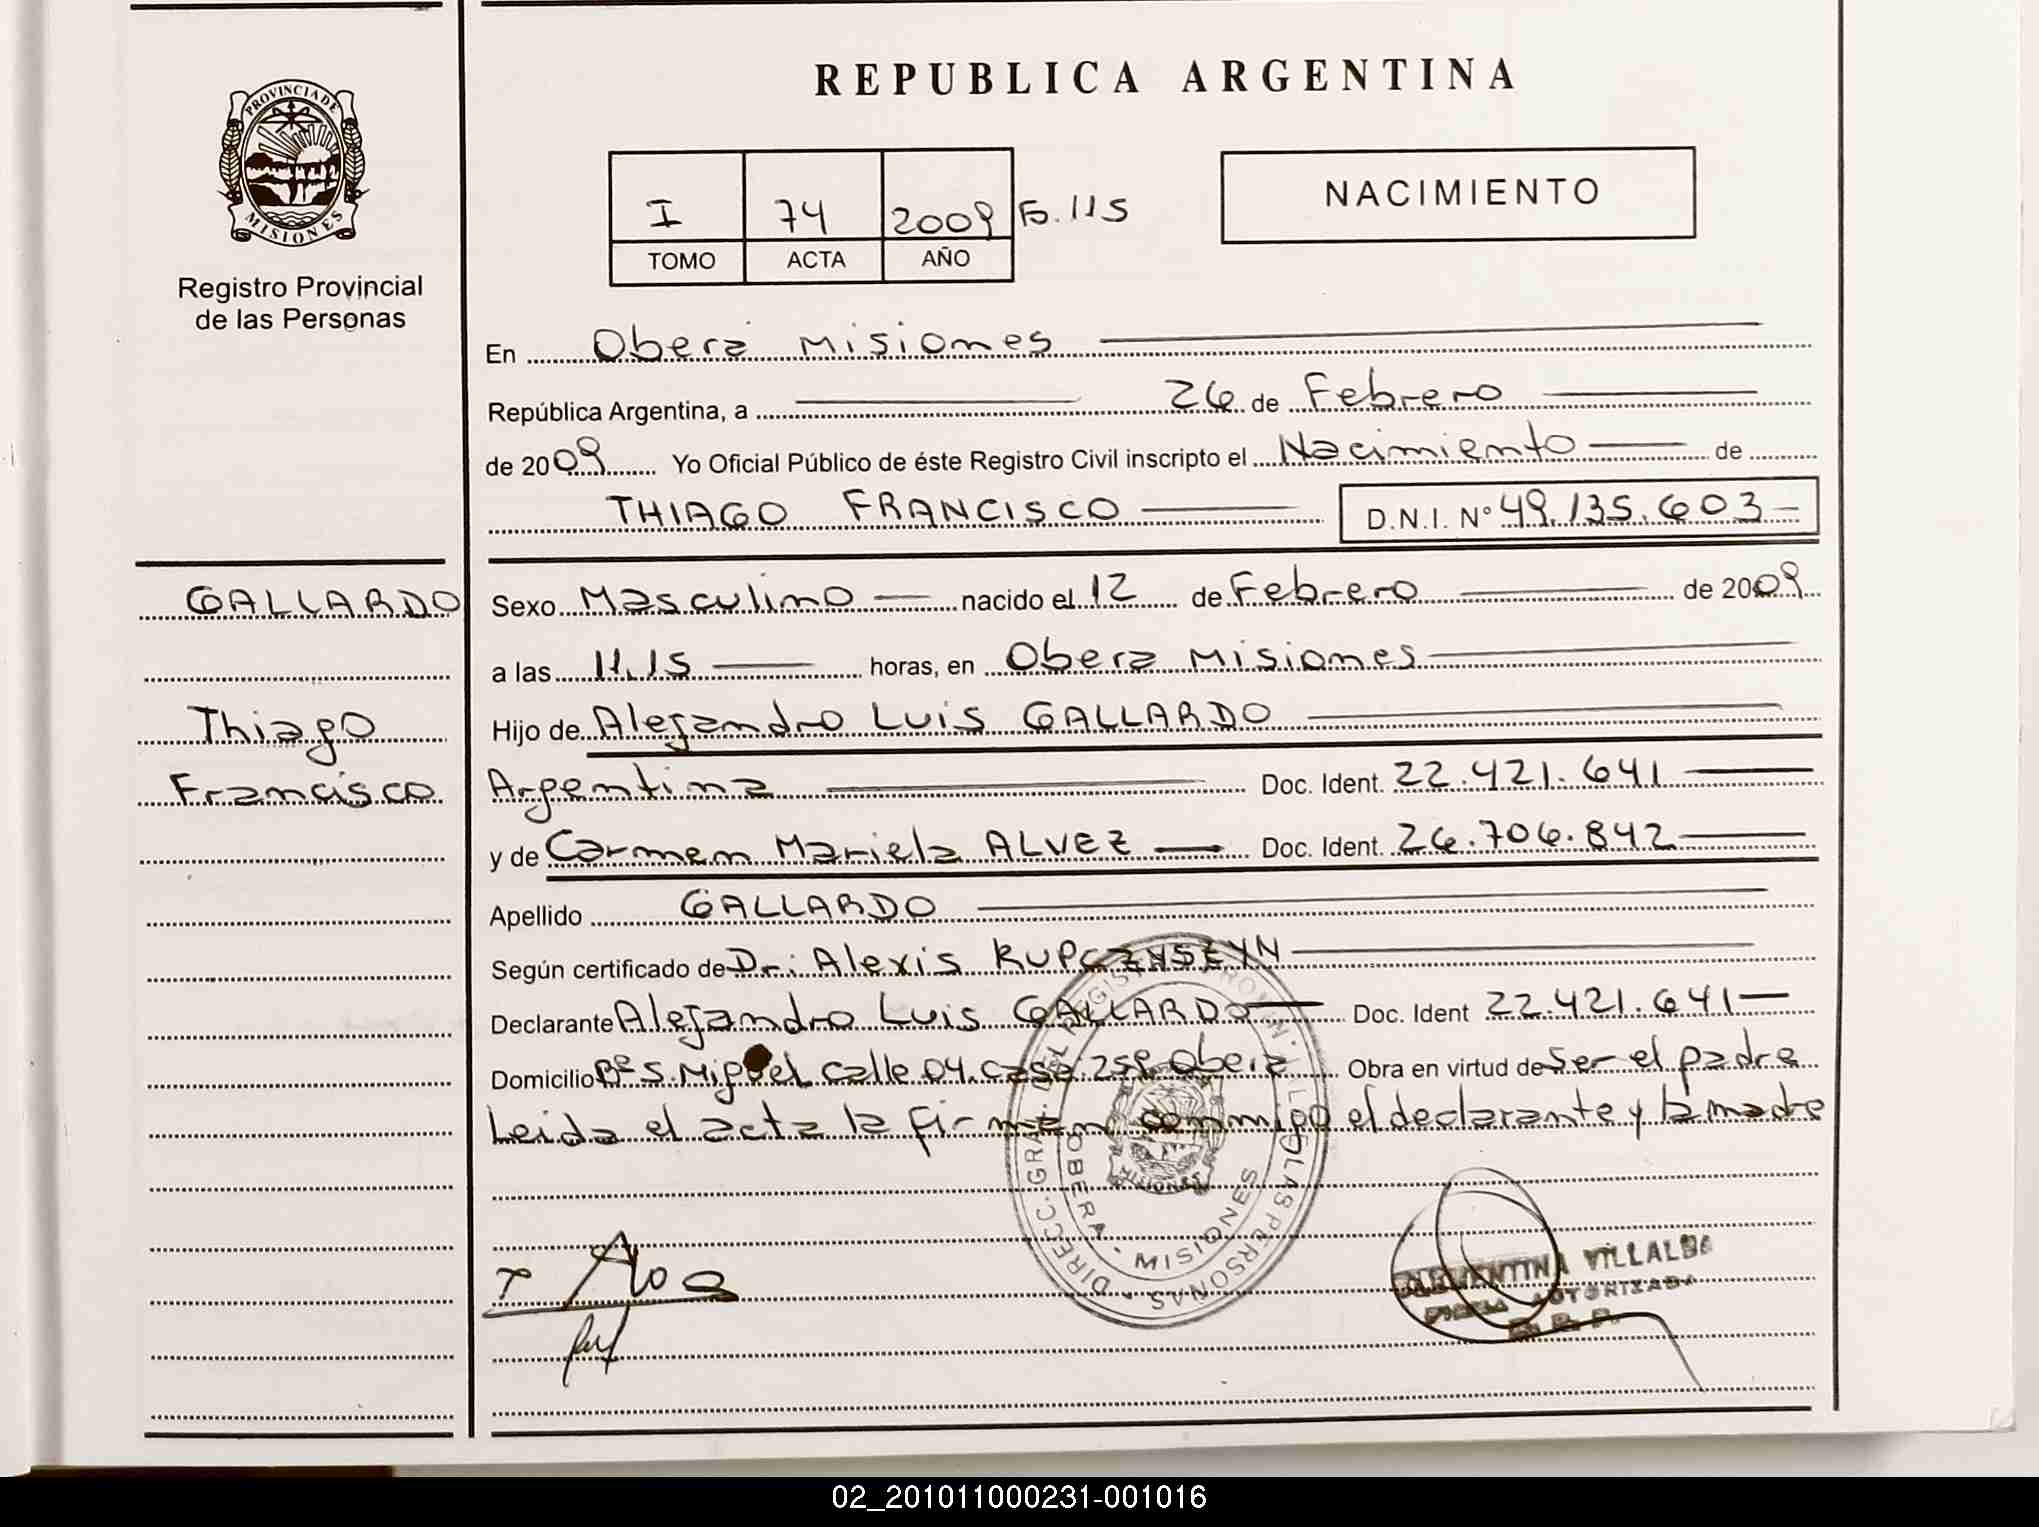 REPUBLICA ARGENTINA
PROVINCIA DE
MISIONES
Registro Provincial
de las Personas
I 74 2009 Fo. 115
TOMO ACTA AÑO
NACIMIENTO
En Oberá Misiones
República Argentina, a 26 de Febrero
de 2009 Yo Oficial Público de éste Registro Civil inscripto el Nacimiento de
THIAGO FRANCISCO D.N.I. Nº 49.135.603
GALLARDO
Thiago
Francisco
Sexo Masculino nacido el 12 de Febrero de 2009
a las 11.15 horas, en Obera Misiones
Hijo de Alejandro Luis GALLARDO
Argentina Doc. Ident. 22.421.641
y de Carmen Mariela ALVEZ Doc. Ident. 26.706.842
Apellido GALLARDO
Según certificado de Dr: Alexis
Declarante Alejandro Luis GALLARDO Doc. Ident 22.421.641
Domicilio Bº S. Miguel calle 04. casa: 258. Obera Obra en virtud de ser el padre
Leida el acta la firman conmigo el declarante y la madre
DIRECC. GRAL. DEL REGISTRO PROVIN. DE LAS PERSONAS
OBERA - MISIONES
MISIONES
CLEMENTINA VILLALBA
FIRMA AUTORIZADA
R. P. P.
02_201011000231-001016